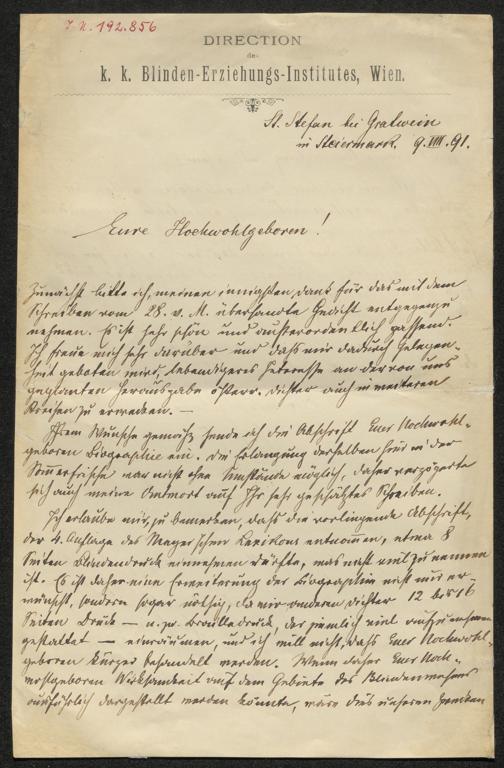 J. N. 192.856
DIRECTION
des
k. k. Blinden-Erziehungs-Institutes, Wien.
St. Stefan bei Gratwein
in Steiermark. 9.VIII.91.
Eure Hochwohlgeboren!
Zunächst bitte ich, meinen innigsten Dank für das mit dem
Schreiben vom 28. v. M. übersandte Gedicht entgegenzu
nehmen. Es ist sehr schön und außerordentlich passend.
Ich freue mich sehr darüber und daß mir dadurch Gelegen-
heit geboten wird, lebendigeres Interesse an der von uns
geplanten Herausgabe österr. Dichter auch in weiteren
Kreisen zu erwecken. —
Ihrem Wunsche gemäß sende ich die Abschrift Euer Hochwohl-
geboren Biographie ein. Die Erlangung derselben hier in der
Sommerfrische war nicht ohne Umstände möglich, daher verzögerte
sich auch meine Antwort auf Ihr sehr geschätztes Schreiben.
Ich erlaube mir, zu bemerken, daß die vorliegende Abschrift,
der 4. Auflage des Meyer'schen Lexikons entnommen, etwa 8
Seiten Blindendruck einnehmen dürfte, was nicht viel zu nennen
ist. Es ist daher eine Erweiterung der Biographie nicht nur er-
wünscht, sondern sogar nöthig, da wir anderen Dichter 12 bis 16
Seiten Druck — u. zw. Brailledruck, der ziemlich viel aufzunehmen
gestattet — einräumen, und ich will nicht, daß Euer Hochwohl-
geboren kürzer behandelt werden. Wenn daher Euer Hoch-
wohlgeboren Wirksamkeit auf dem Gebiete des Blindenwesens
ausführlich dargestellt werden könnte, wäre dies unseren Zwecken